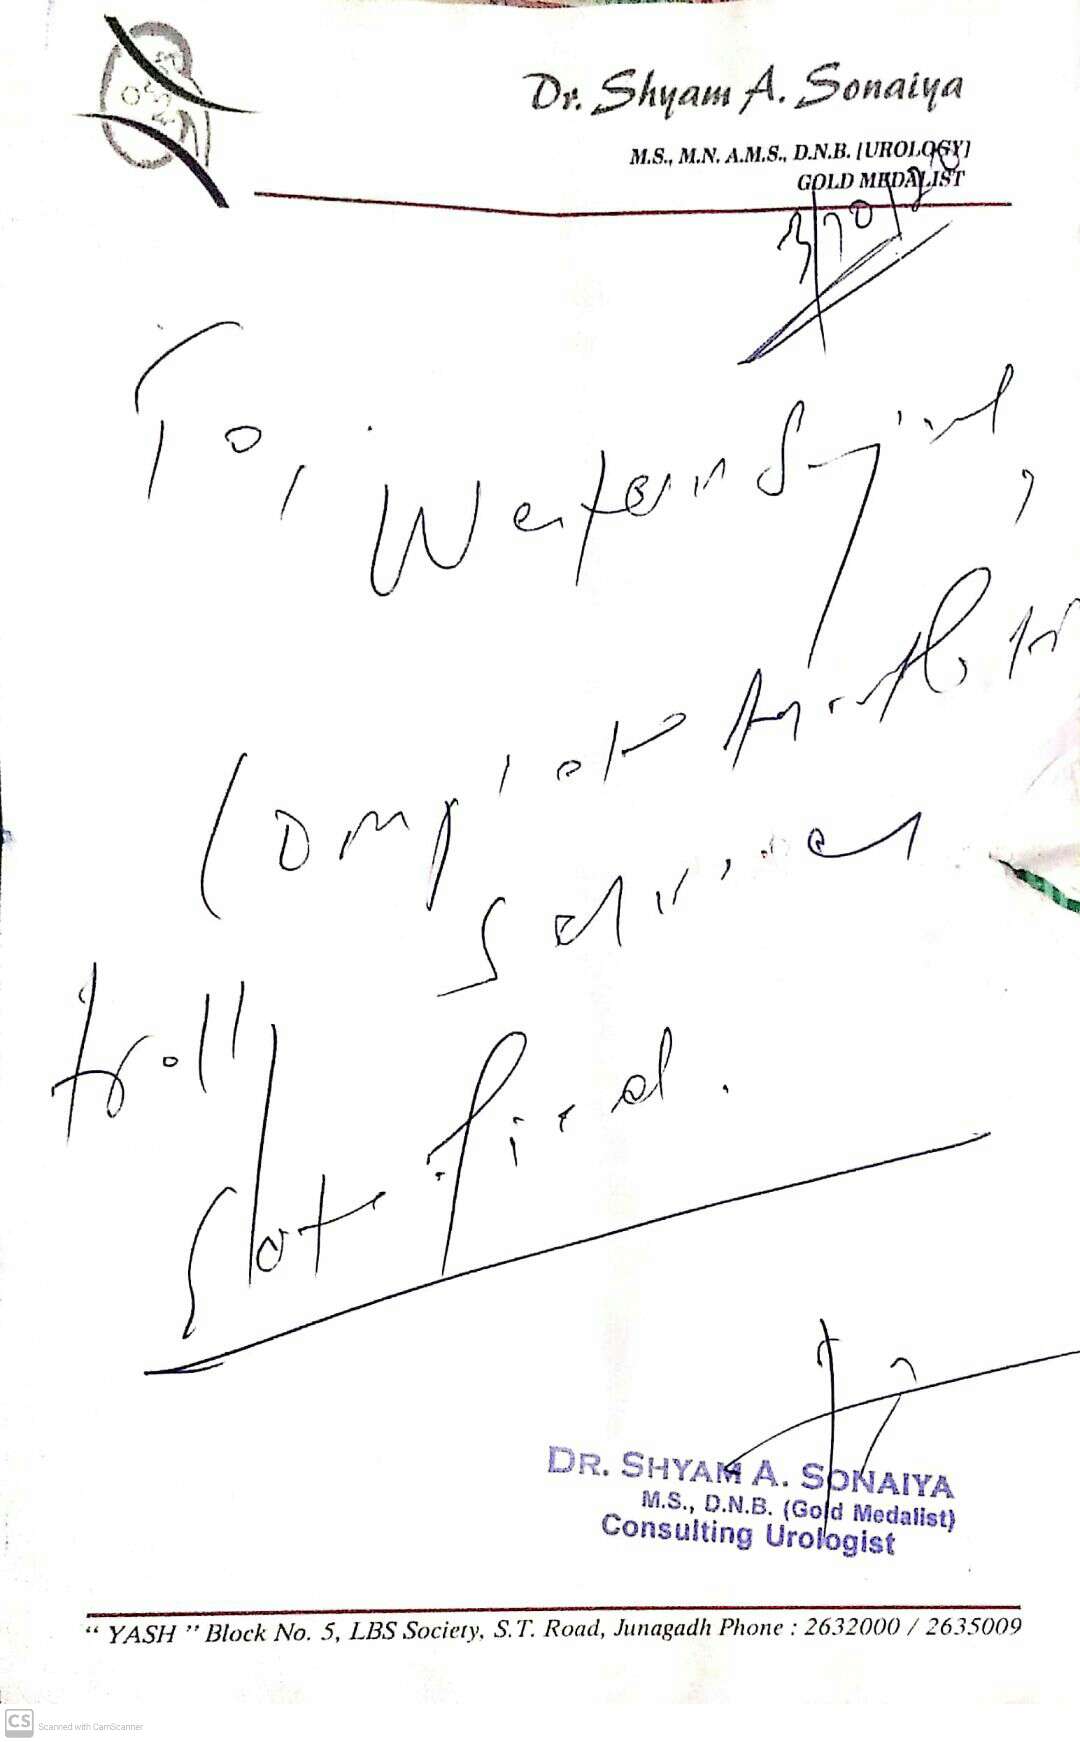 Dr. Shyam A. Sonaiya
M.S., M.N. A.M.S., D.N.B. [UROLOGY]
GOLD MEDALIST
3/10/20
To,
Western Surgical,
Complete
troll
slot fixed.
DR. SHYAM A. SONAIYA
M.S., D.N.B. (Gold Medalist)
Consulting Urologist
“ YASH ” Block No. 5, LBS Society, S.T. Road, Junagadh Phone : 2632000 / 2635009
CS Scanned with CamScanner